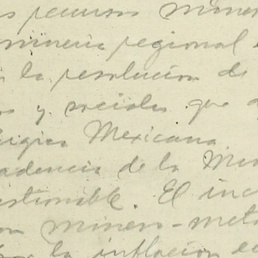 s recursos miner
minería regional
la resolución de
s y sociales que
úrgica Mexicana
adencia de la Min
estionable. El inc
on minero-meta
la inflación